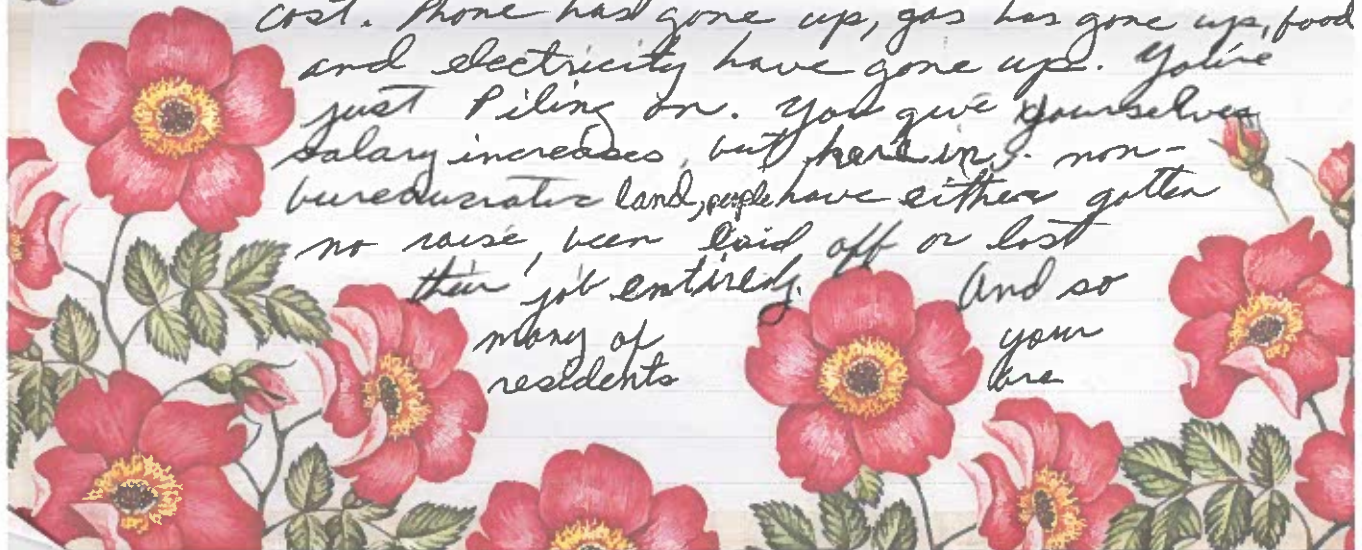 cost. Phone has gone up, gas has gone up, food
and electricity have gone up. You're
just Piling on. You give yourselves
salary increases, but here in non-
bureaucratic land, people have either gotten
no raise, been laid off or lost
their job entirely. And so
many of your
residents are